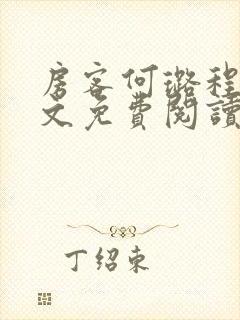 房客何璐程
文免費閱讀
丁绍東